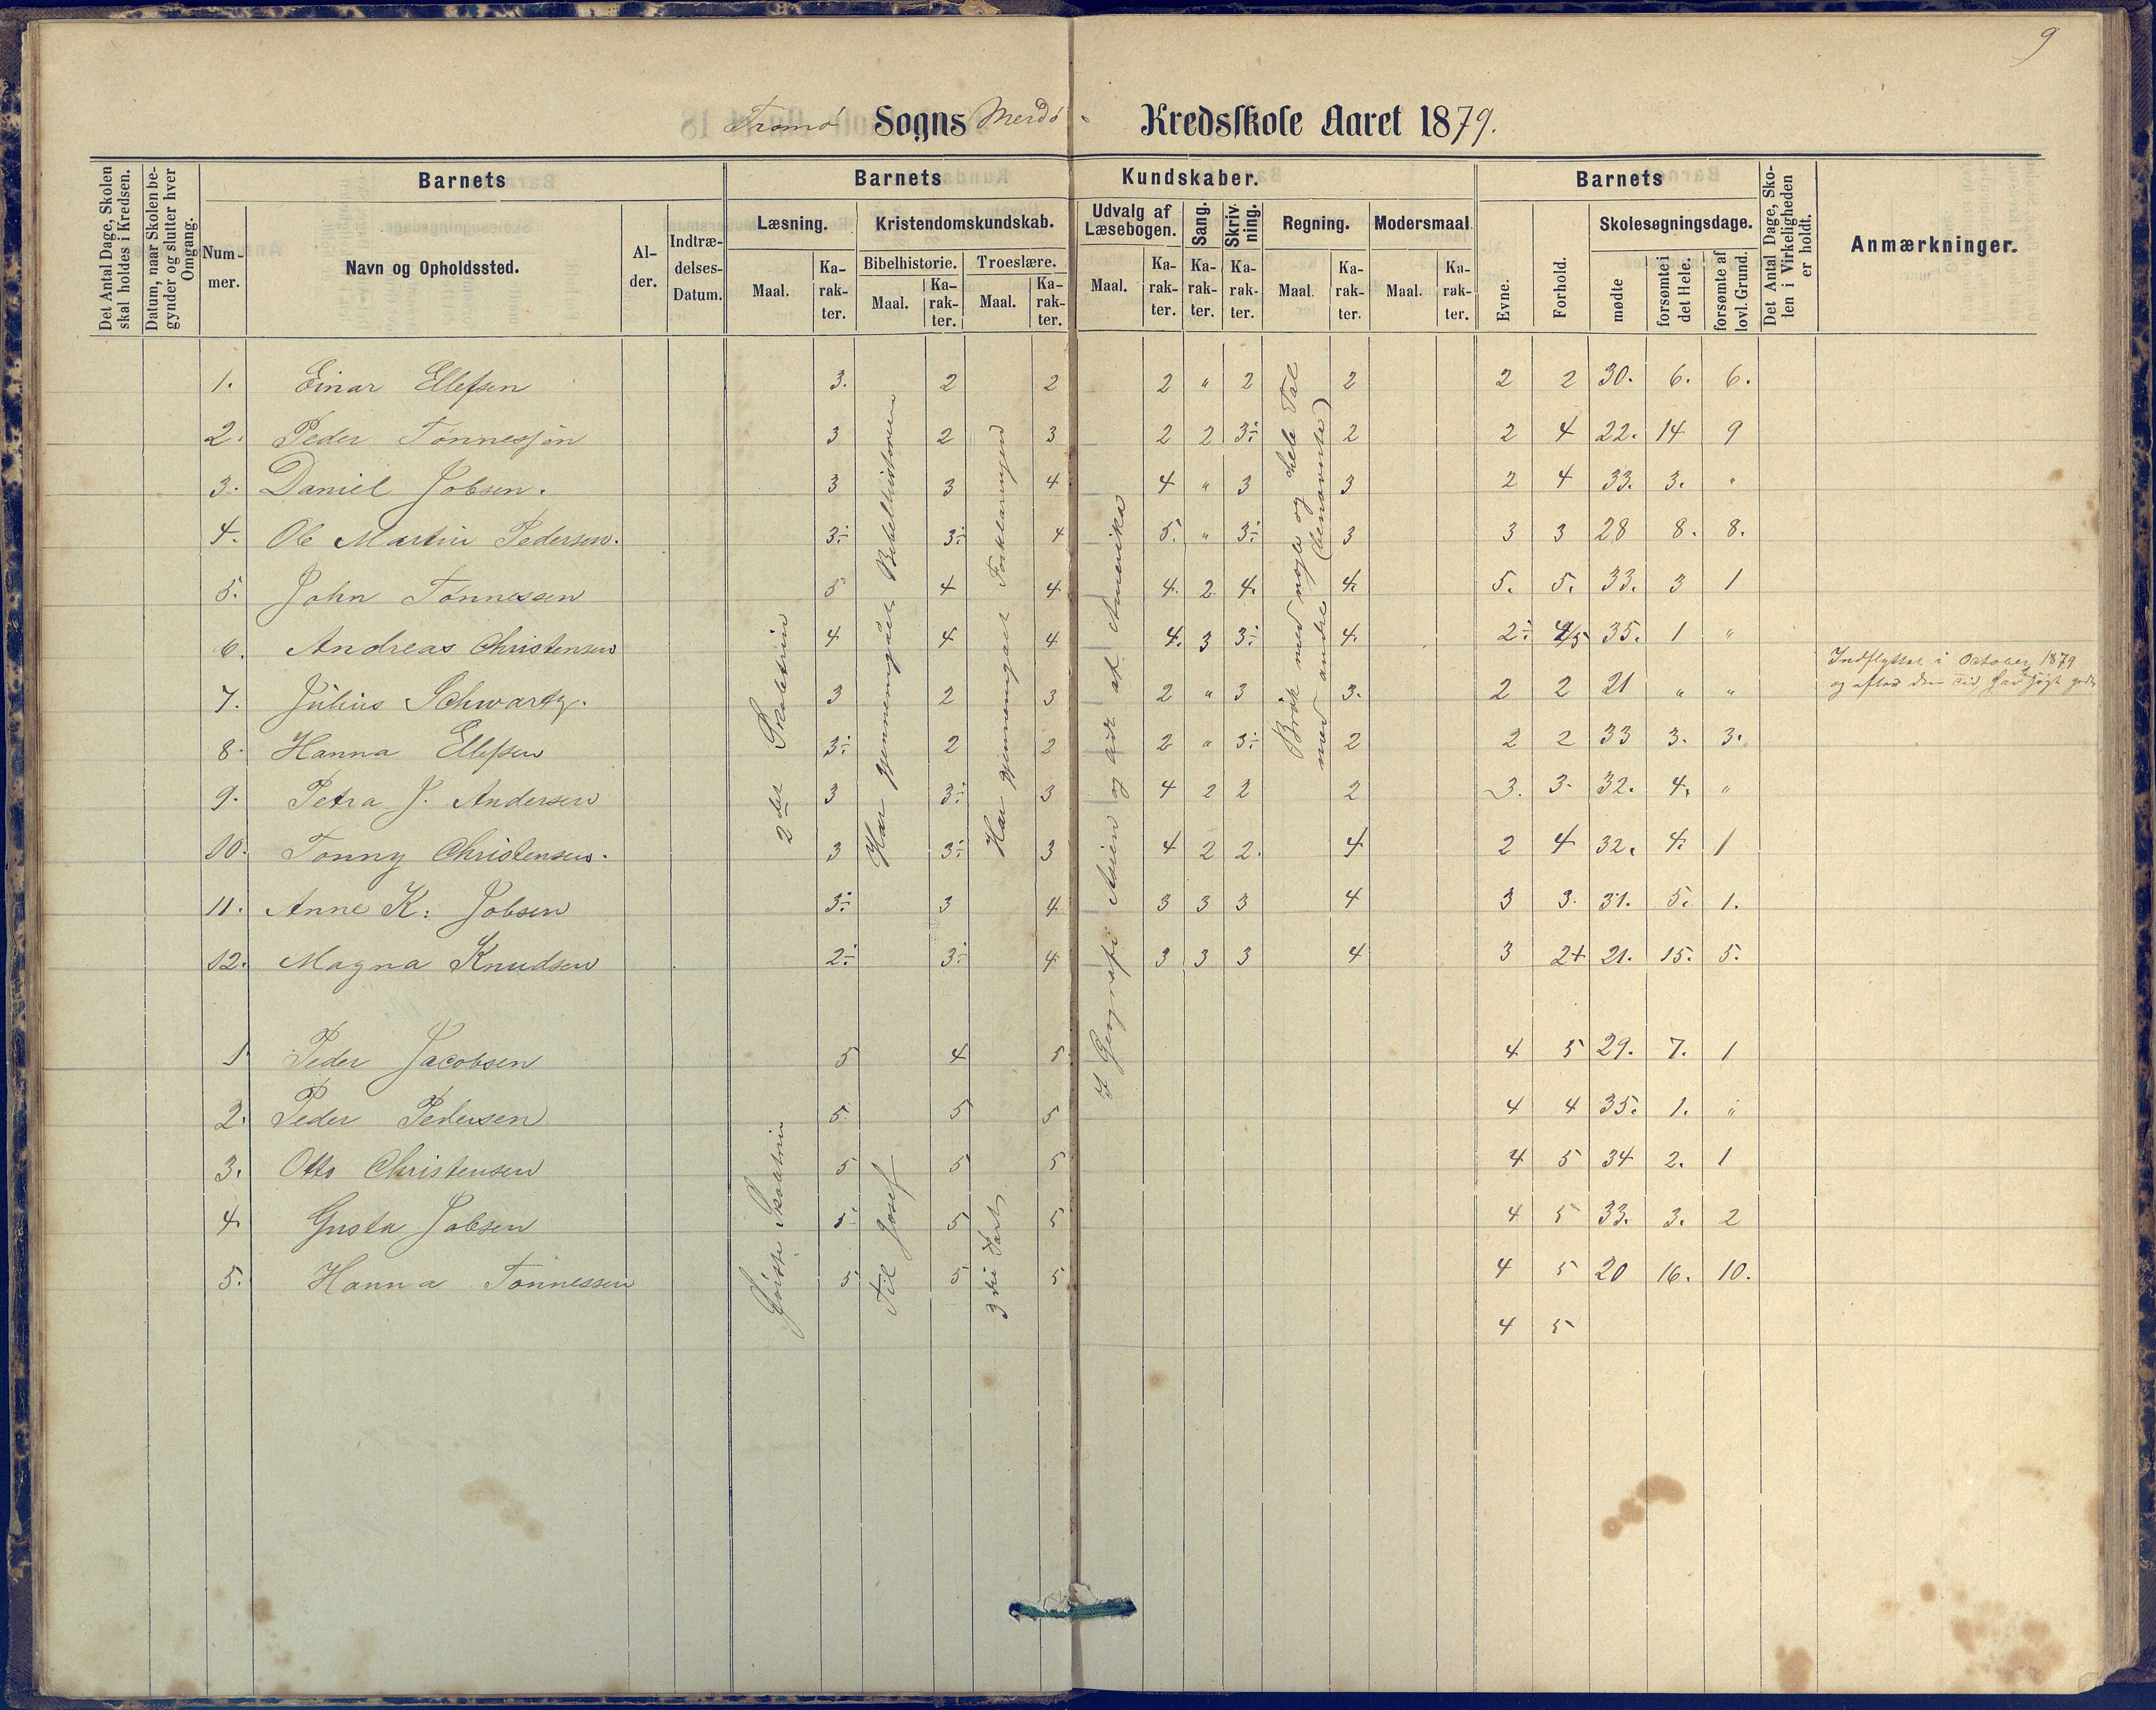 9
Tromø Sogns Merdø - Kredsskole Aaret 1879.
Det Antal Dage, Skolen skal holdes i Kredsen.
Datum, naar Skolen begynder og slutter hver Omgang.
Barnets
Num-mer.
Navn og Opholdssted.
Al-der.
Indtræ-delses-Datum.
Barnets Kundskaber.
Læsning.
Maal.
Ka-rak-ter.
Kristendomskundskab.
Bibelhistorie.
Maal.
Ka-rak-ter.
Troeslære.
Maal.
Ka-rak-ter.
Udvalg af Læsebogen.
Maal.
Ka-rak-ter.
Sang.
Ka-rak-ter.
Skriv-ning.
Ka-rak-ter.
Regning.
Maal.
Ka-rak-ter.
Modersmaal
Maal.
Ka-rak-ter.
Barnets
Evne.
Forhold.
Skolesøgningsdage.
mødte
forsømte i det Hele.
forsømte af lovl. Grund.
Det Antal Dage, Sko-len i Virkeligheden er holdt.
Anmærkninger.
1. Einar Ellefsen 3. 2 2 2 " 2 2 2 2 30. 6. 6.
2. Peder Tønnessøn 3 2 3 2 2 3÷ 2 2 4 22. 14 9
3. Daniel Jobsen. 3 3 4 4 " 3 3 2 4 33. 3. "
4. Ole Martin Pedersen. 3÷ 3÷ 4 5. " 3÷ 3 3 3 28 8. 8.
5. John Tønnessen 5 4 4 4. 2 4. 4. 5. 5. 33. 3 1
6. Andreas Christensen 4 4 4 4. 3 3÷ 4. 2÷ 4/5 35. 1 "
7. Julius Schwartz. 3 2 3 2 " 3 3. 2 2 21 " "
Indflyttet i October 1879
og efter den Tid har søgt godt
8. Hanna Ellefsen 3÷ 2 2 2 " 3÷ 2 2 2 33 3. 3.
9. Petra J. Andersen 3 3÷ 3 4 2 2 2 3. 3. 32. 4. "
10. Tonny Christensen. 3 3÷ 3 4 2 2. 4 2 4 32. 4. 1
11. Anne K: Jobsen 3÷ 3 4 3 3 3 4 3 3. 31. 5. 1.
12. Magna Knudsen 2÷ 3÷ 4 3 3 3 4 3 2+ 21. 15. 5.
2det Skoletrin
Har gjennemgaaet Bibelhistorien
Har gjennemgaaet Forklaringen
I Geografi Asien og lidt af Amerika
Brøk med nogle og hele Tal
med andre (benævnte)
1 Peder Jacobsen 5 4 5 4 5 29. 7. 1
2. Peder Pedersen 5 5 5 4 4 35. 1. "
3. Otto Christensen 5 5 5 4 5 34 2. 1
4 Gusta Jobsen 5 5 5 4 5 33. 3. 2
5. Hanna Tønnessen 5 5 5 4 5 20 16. 10.
4 5
Første Skoletrin
Til Josef
3die Part